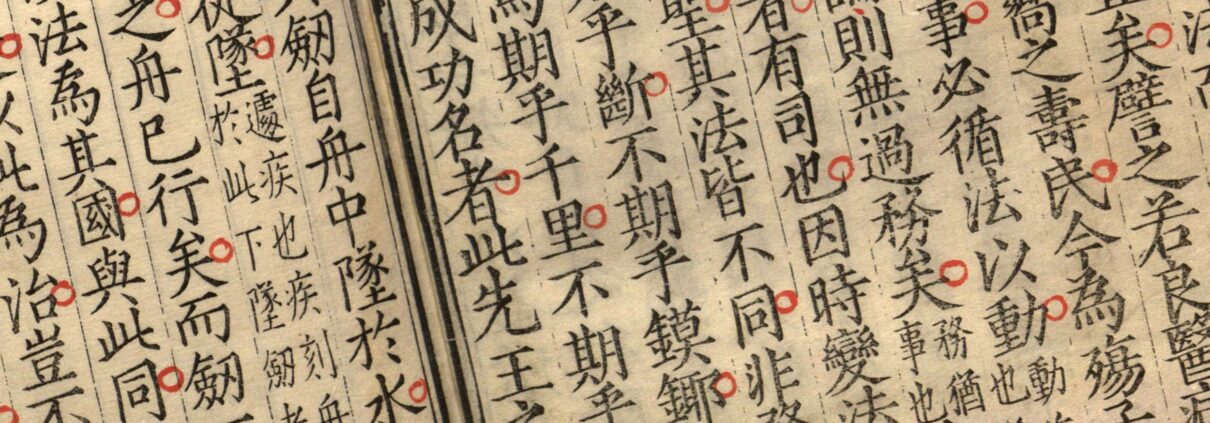 法
矣譬之若良醫病
嚮之壽民今為殤子
事必循法以動
動
也
則無過務矣
務猶
事也
者有司也因時變法
聖其法皆不同非務
乎斷不期乎鏌鋣
為期乎千里不期乎
成功名者此先王之
其劒自舟中墜於水
從墜
遽疾也疾刻舟
於此下墜劒者
之舟已行矣而劒
法為其國與此同
以此為治豈不